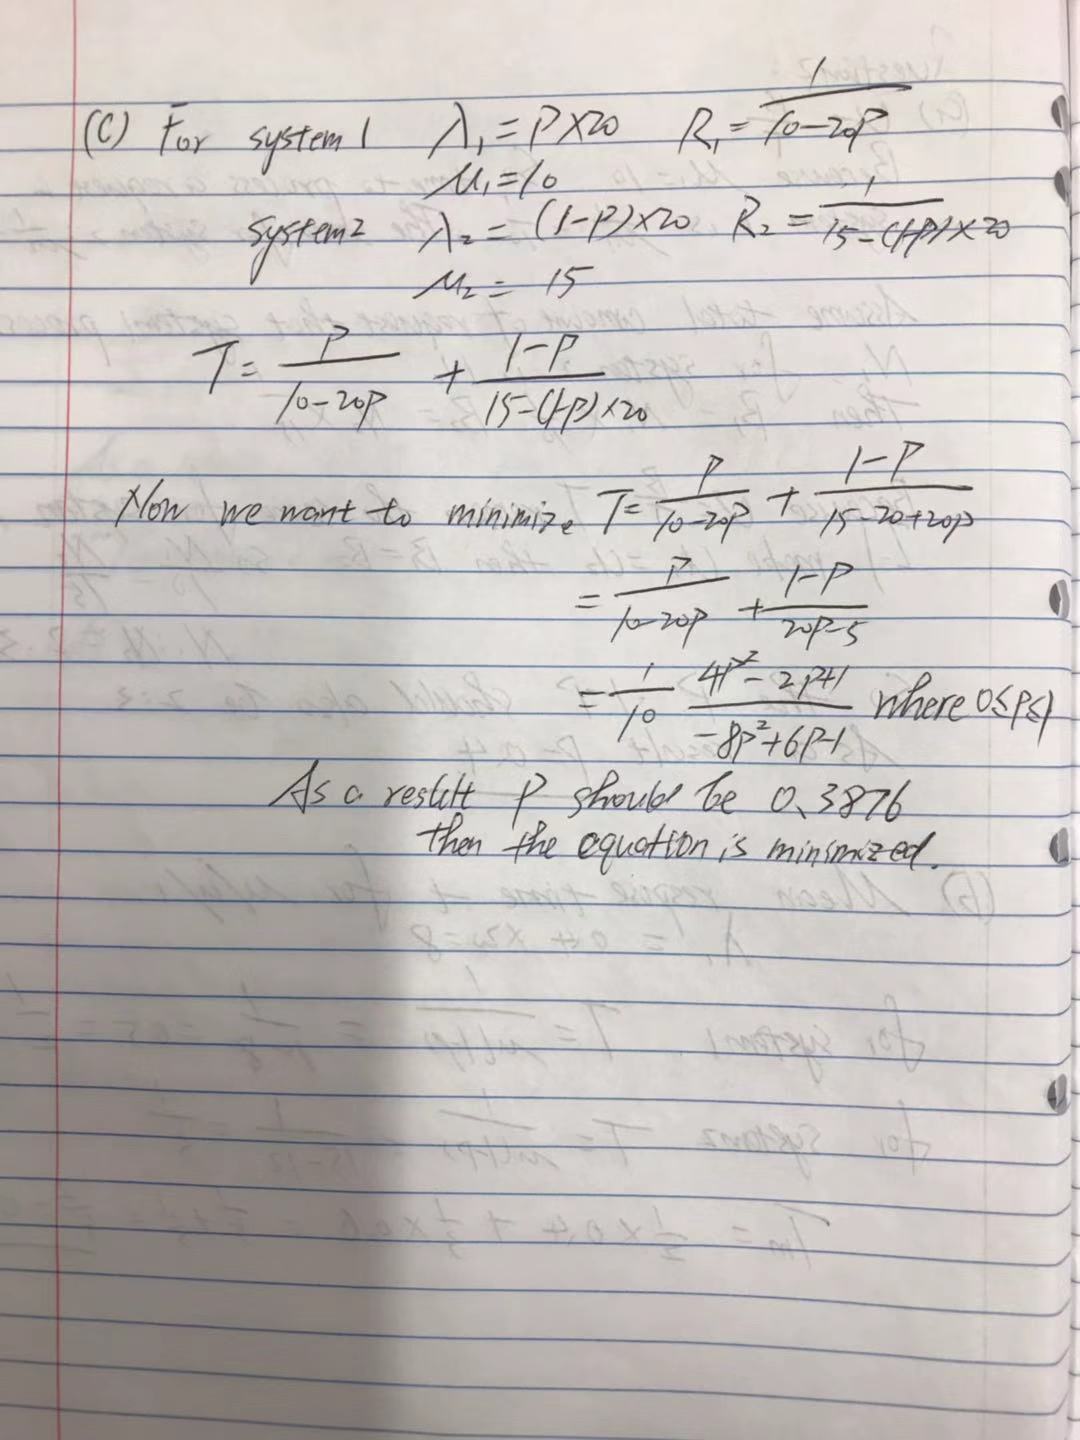 (C) For system 1 λ₁ = P×20 R₁ = 1/(10-20P)
μ₁ = 10
system 2 λ₂ = (1-P)×20 R₂ = 1/(15-(1-P)×20)
μ₂ = 15
T = P/(10-20P) + (1-P)/(15-(1-P)×20)
Now we want to minimize T = P/(10-20P) + (1-P)/(15-20+20P)
= P/(10-20P) + (1-P)/(20P-5)
= 1/10 (4P²-2P+1)/(-8P²+6P-1) where 0≤P≤1
As a result P should be 0.3876
then the equation is minimized.